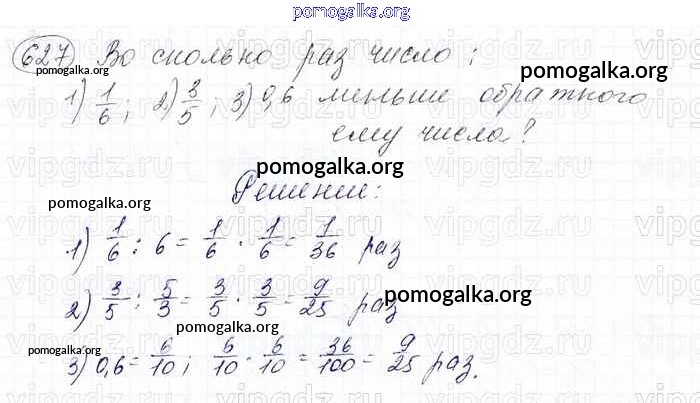 pomogalka.org
627 Во сколько раз число:
pomogalka.org
pomogalka.org
1) 1/6; 2) 3/5; 3) 0,6 меньше обратного
ему числа?
pomogalka.org
pomogalka.org
Решение:
1) 1/6 : 6 = 1/6 · 1/6 = 1/36 раз
2) 3/5 : 5/3 = 3/5 · 3/5 = 9/25 раз
pomogalka.org
pomogalka.org
pomogalka.org
3) 0,6 = 6/10; 6/10 · 6/10 = 36/100 = 9/25 раз.
vipgdz.ru